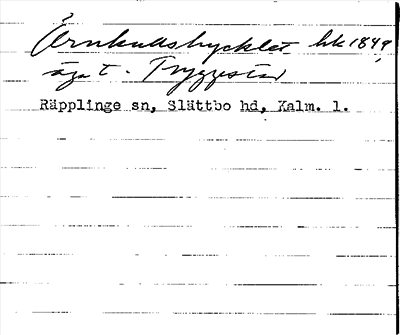 Örnkullshycklet hk 1849,
äga t. Tryggestad
Räpplinge sn, Slättbo hd, Kalm. l.